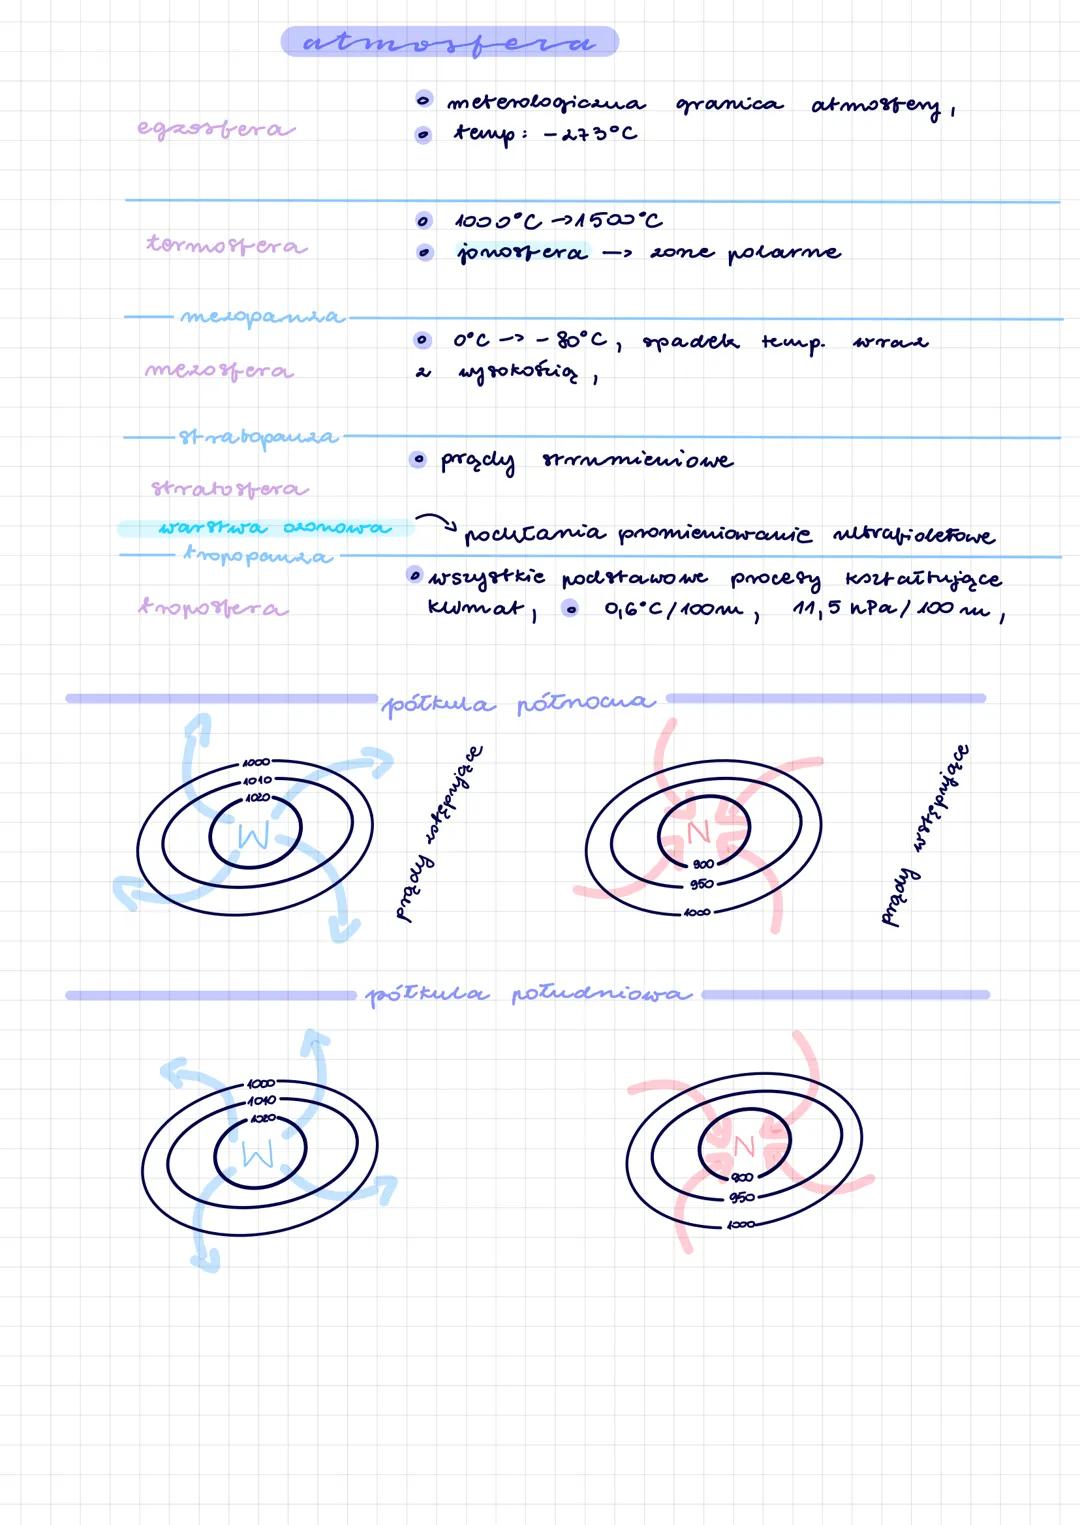 atmosfera
egzosfera
meterologiczna granica atmosfery,
temp: -273°C
termosfera
1000°C →1500°C
jonosfera → zorze polarne
mezopauza
mezosfera
0°C → - 80°C, spadek temp. wraz
z wysokością,
stratopauza
stratosfera
prądy strumieniowe
warstwa ozonowa
pochłania promieniowanie ultrafioletowe
tropopauza
troposfera
wszystkie podstawowe procesy kształtujące
klimat, 0,6°C/100m, 11,5 hPa/100m,
półkula północna
1000
1010
1020
W
prądy zstępujące
N
900
950
1000
prądy wstępujące
półkula południowa
1000
1010
1020
W
N
900
950
1000